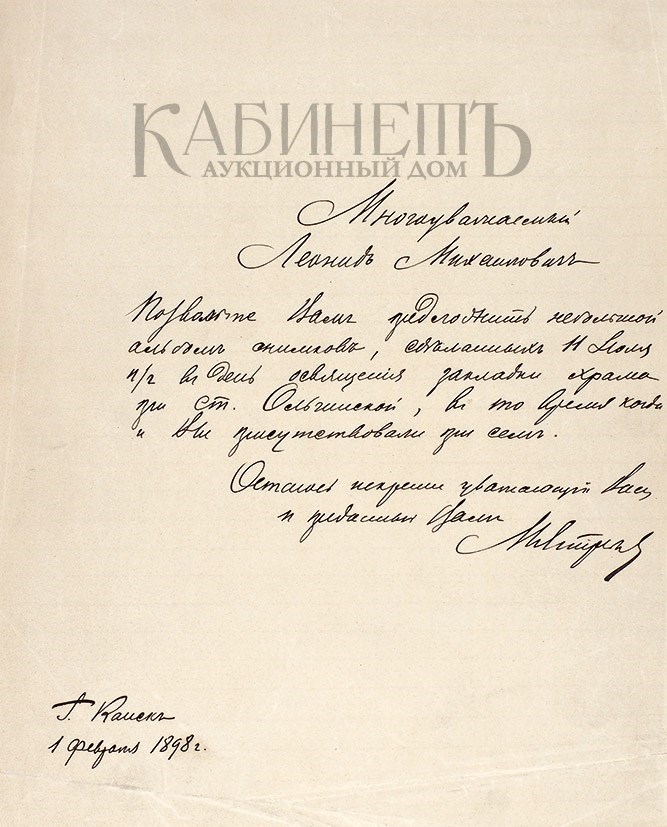 КАБИНЕТЪ
АУКЦИОННЫЙ ДОМ
Многоуважаемый
Леонидъ Михаиловичъ
Позвольте Вамъ предложить небольшой
альбомъ снимковъ, сдѣланныхъ 11 Іюля
п/г въ день освященія закладки храма
при ст. Ольгинской, въ то время когда
и Вы присутствовали при семъ.
Остаюсь искренне уважающій Васъ
и преданный Вамъ
Г. Каискъ
1 февраля 1898 г.